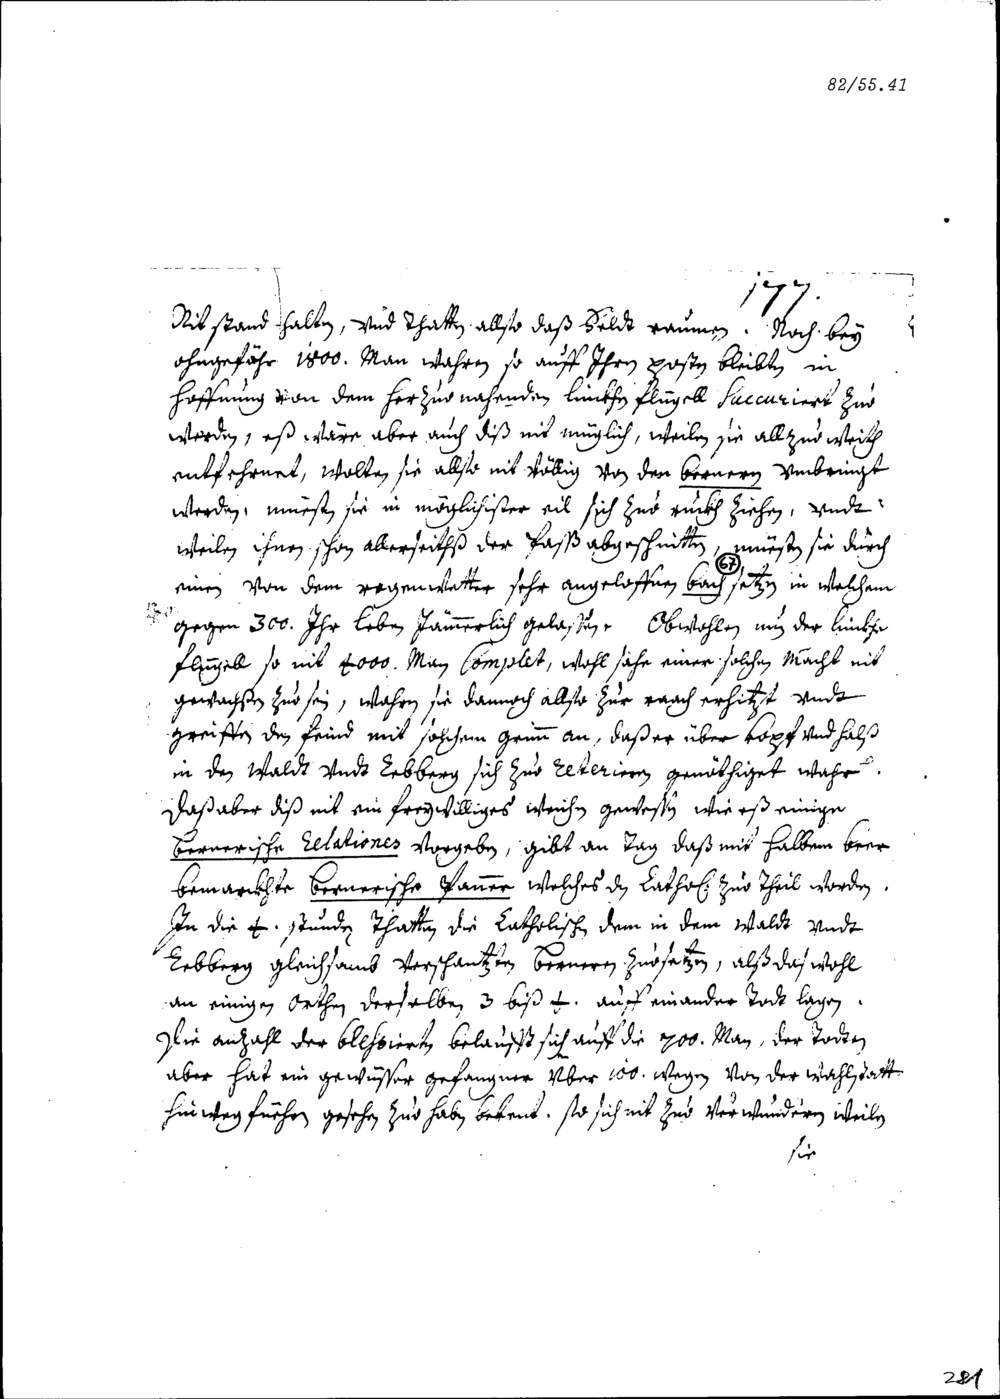 82/55.41
177.
Nit stand halten, vnd Thatten allso daß Feldt raumen. Noch bey
ohngefähr 1800. Man wahren so auff Ihren posten bleibten in
hoffnung von dem herzuo nahenden linckhen flügell Succuriert zuo
werden, eß wäre aber auch diß nit müglich, weilen sie all zuo weith
entfehrnet, wolten sie allso nit völlig von den bernern vmbringt
werden, müesten sie in möglichister eil sich zuo ruckh ziehen, vndt
weilen ihnen schon allerseithß der Paß abgeschnitten, müesten sie durch
67
einen von dem regenwetter sehr angeloffnen bach setzen in welchem
gegen 300. Ihr leben Jämmerlich gelassen. Obwohlen nun der linckhe
flügell so nit 4000. Man Complet, wohl sahe einer solchen Macht nit
gewachsen zuo sein, wahren sie dannoch allso zur raach erhitzt vndt
greiffen den feind mit solchem grimm an, daß er über kopf vnd halß
in den Waldt vndt Rebberg sich zuo reterieren genöthiget wahr.
Daß aber diß nit ein freywilliges weichen gewessen wie eß einige
bernerische Relationes vorgeben, gibt an Tag daß mit halbem beer
bemarckhte bernerische Panner welches den Cathol: zuo Theil worden.
In die 4. stunden Thatten die Catholischen dem in dem Waldt vndt
Rebberg gleichsamb verschantzten bernern zuosetzen, alß das wohl
an einigen orthen derselben 3 biß 4. auff einander Todt lagen.
Die anzahl der blessierten belaufft sich auff die 700. Man, der Todten
aber hat ein gewüsser gefangner vber 100. wegen von der wahlstatt
hinweg füehren gesehen zuo haben bekent. so sich nit zuo verwundern weilen
sie
281